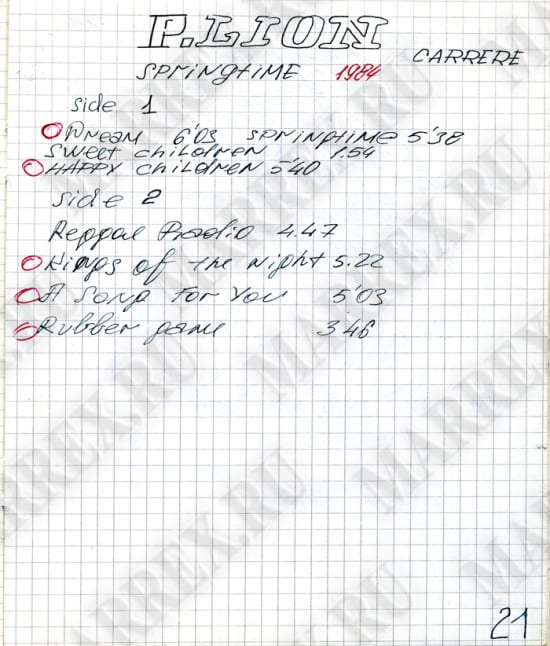 P.LION
CARRERE
SPRINGTIME 1984
side 1
DREAM 6'03 SPRINGTIME 5'38
SWEET CHILDREN 1.54
HAPPY CHILDREN 5'40
side 2
Reggae Radio 4.47
Kings of the night 5.22
A Song For You 5'03
Rubber game 3'46
21
MARREX.RU